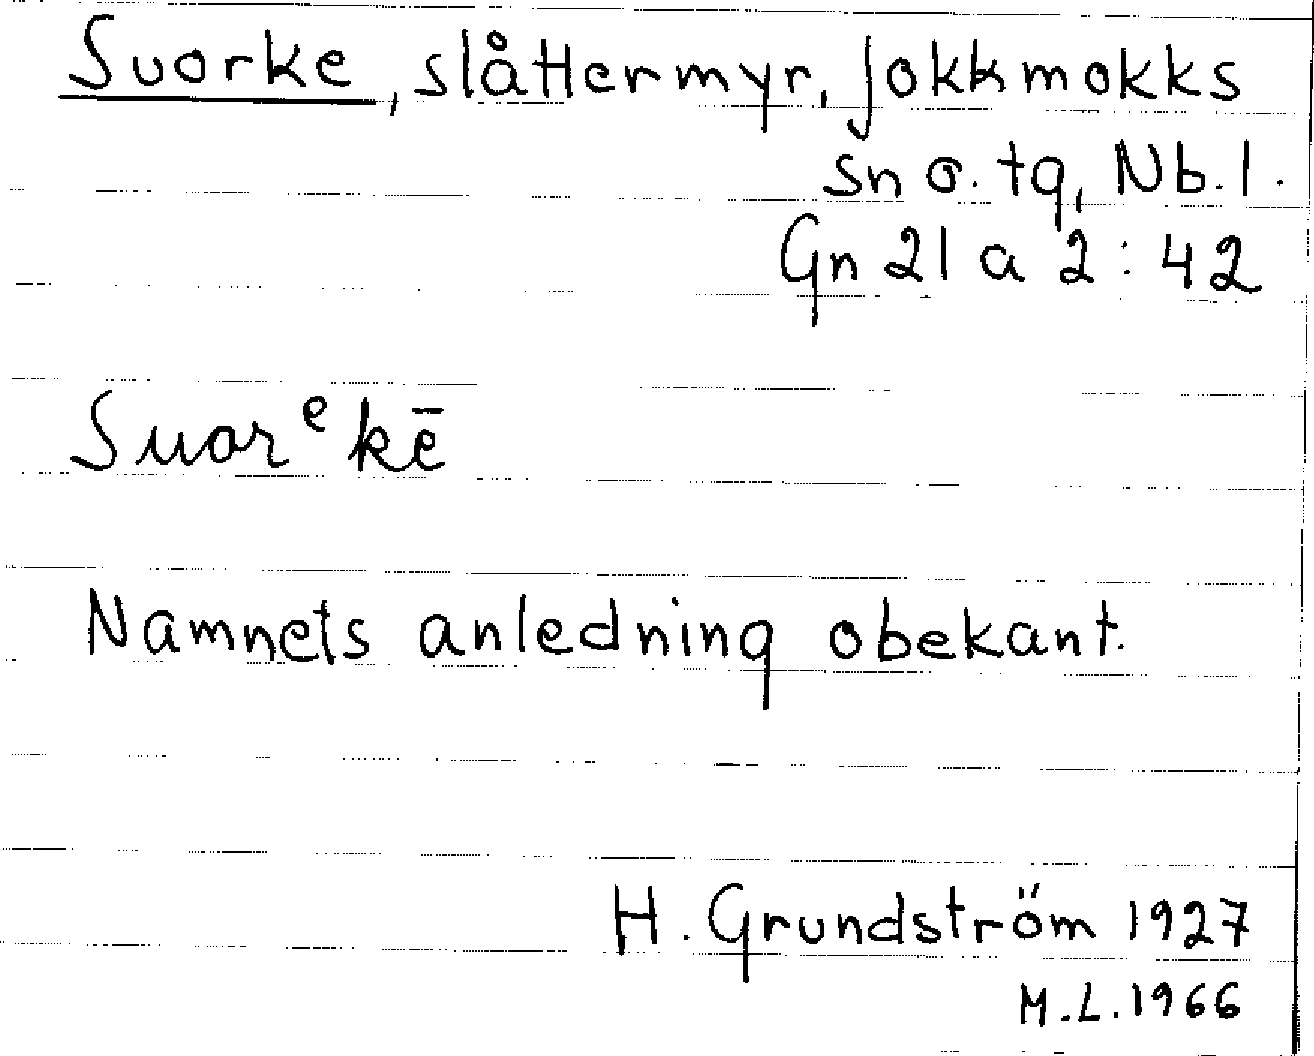 Suorke, slåttermyr, Jokkmokks
sn o. tg, Nb. l.
Gn 21 a 2 : 42
Suorᵉkē
Namnets anledning obekant.
H. Grundström 1927
M.L. 1966